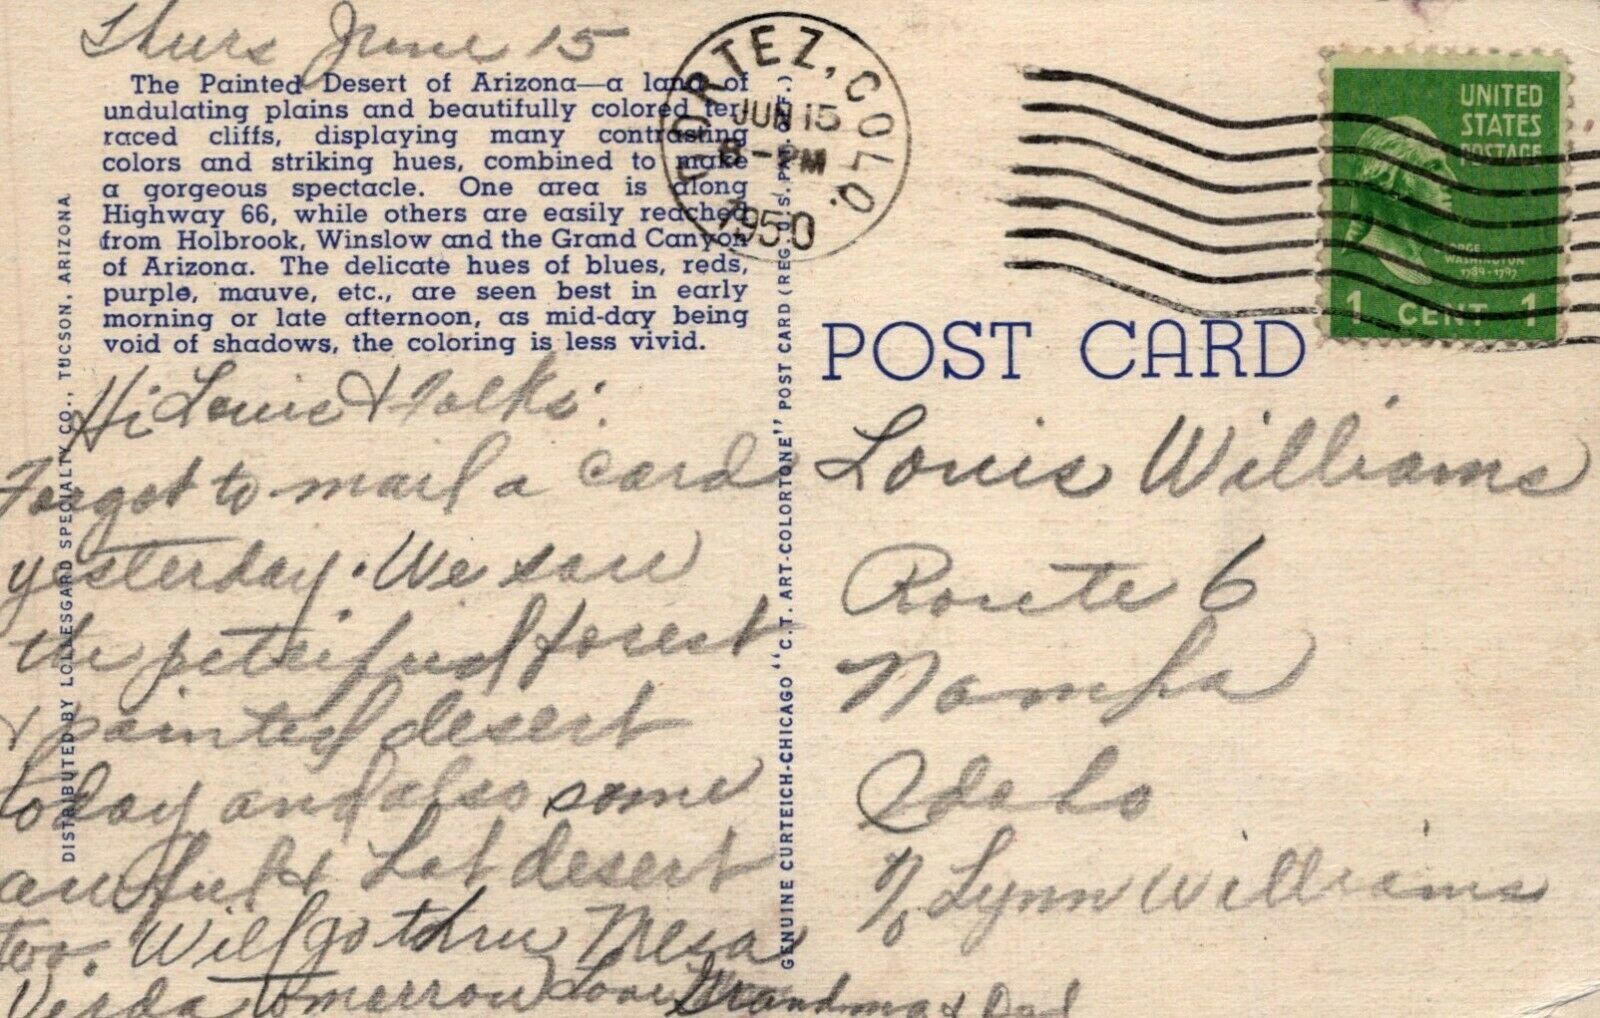 Thurs June 15
The Painted Desert of Arizona—a land of
undulating plains and beautifully colored ter-
raced cliffs, displaying many contrasting
colors and striking hues, combined to make
a gorgeous spectacle. One area is along
Highway 66, while others are easily reached
from Holbrook, Winslow and the Grand Canyon
of Arizona. The delicate hues of blues, reds,
purple, mauve, etc., are seen best in early
morning or late afternoon, as mid-day being
void of shadows, the coloring is less vivid.
Hi Louis & Folks:
Forgot to mail a card
yesterday. We saw
the petrified forest
& painted desert
today and also some
awful & hot desert
too. Will go thru Mesa
Verda tomorrow Love Grandma & Dad
DISTRIBUTED BY LOLLESGARD SPECIALTY CO., TUCSON, ARIZONA
GENUINE CURTEICH-CHICAGO "C.T. ART-COLORTONE" POST CARD (REG. U.S. PAT. OFF.)
CORTEZ, COLO.
JUN 15
8-PM
1950
UNITED
STATES
POSTAGE
GEORGE
WASHINGTON
1789-1797
1 CENT 1
POST CARD
Louis Williams
Route 6
Nampa
Idaho
c/o Lynn Williams